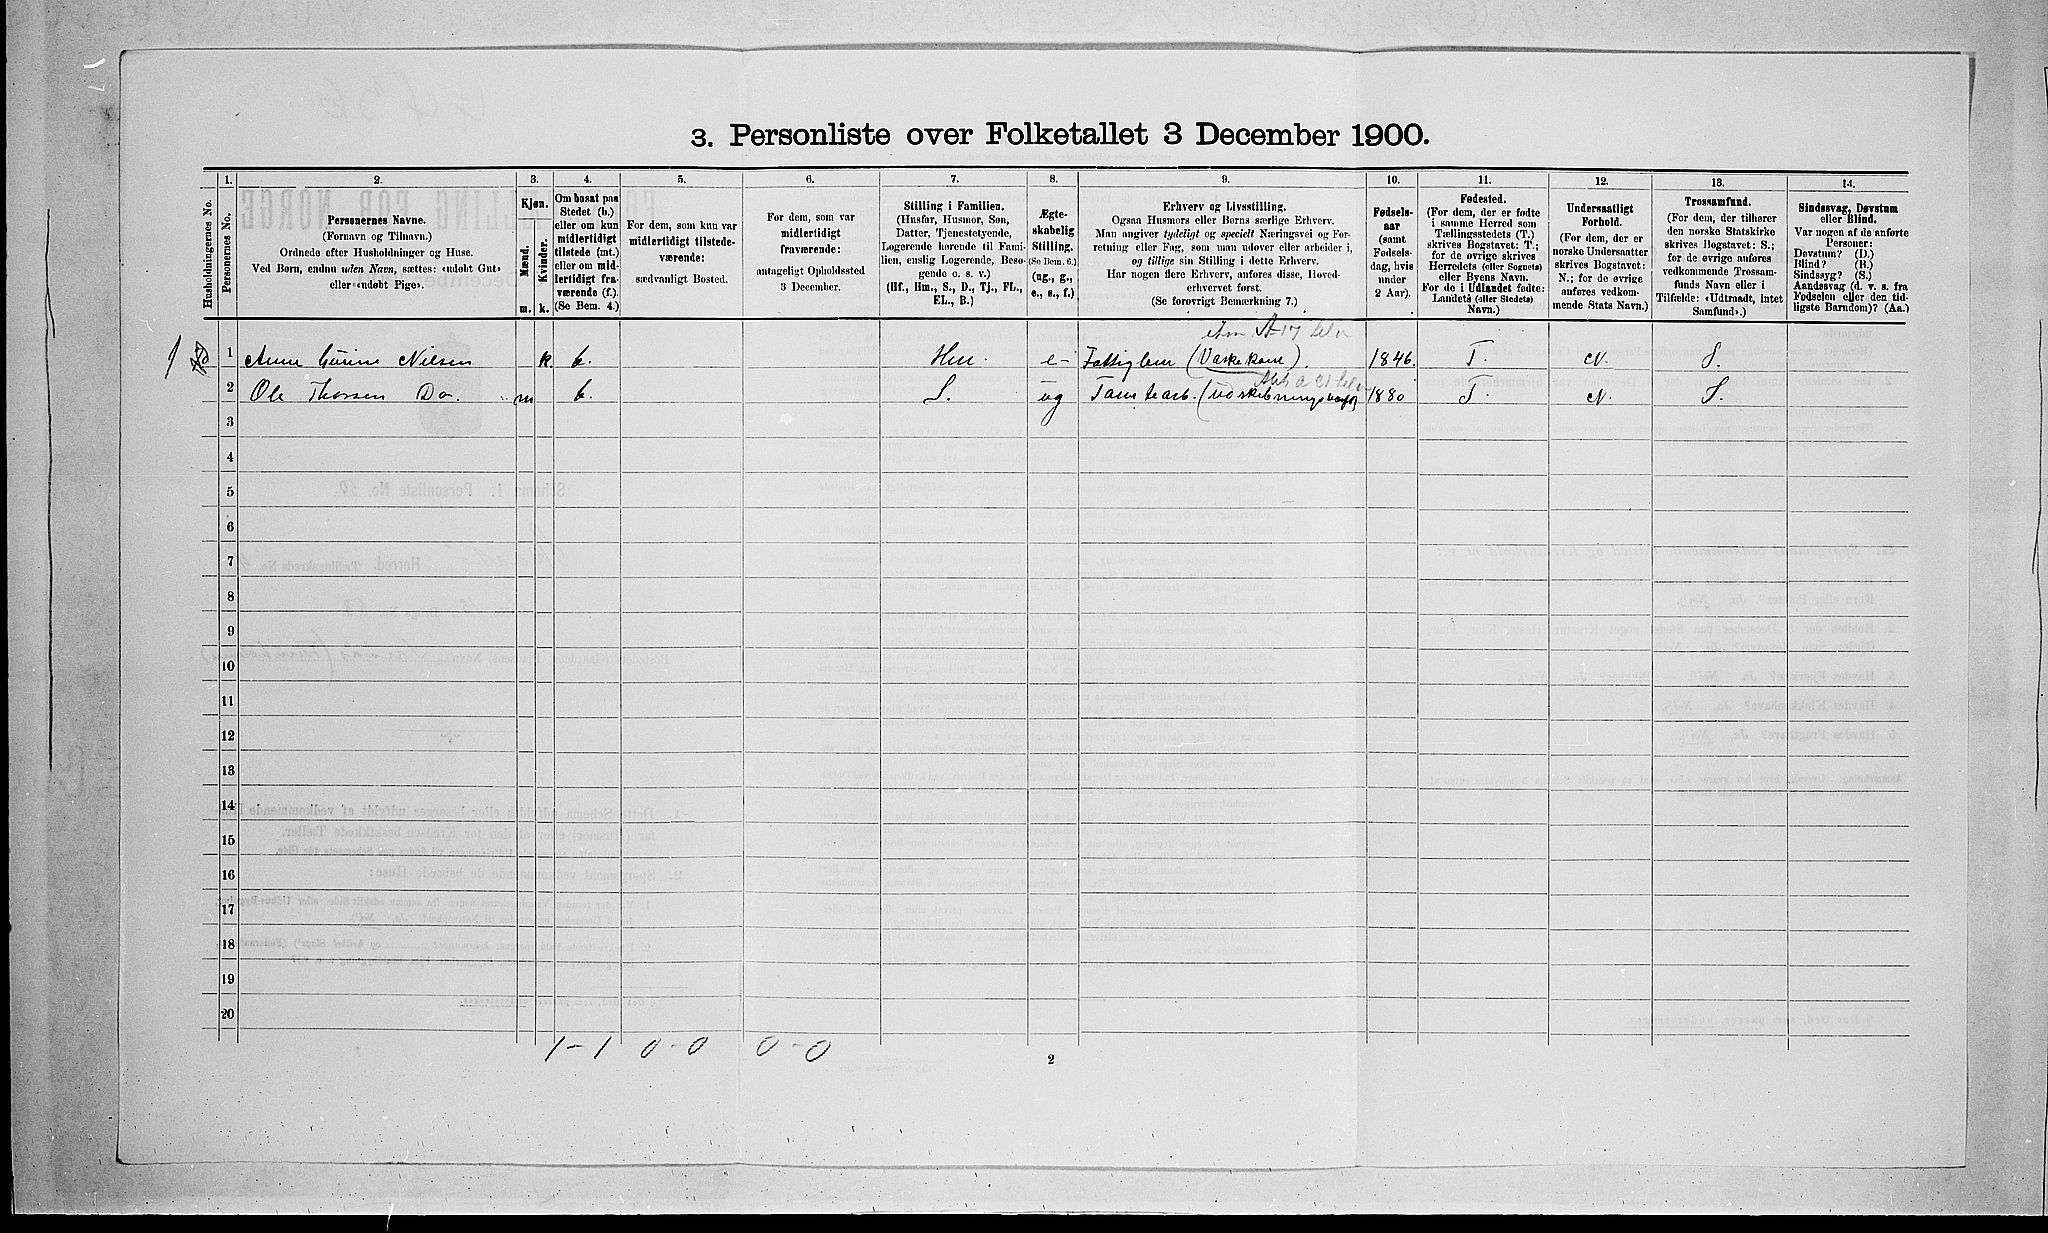 3. Personliste over Folketallet 3 December 1900.
Husholdningernes No.
1.
Personernes No.
2.
Personernes Navne.
(Fornavn og Tilnavn.)
Ordnede efter Husholdninger og Huse.
Ved Børn, endnu uden Navn, sættes: «udøbt Gut»
eller «udøbt Pige».
3.
Kjøn.
Mænd.
Kvinder.
m. k.
4.
Om bosat paa
Stedet (b.)
eller om kun
midlertidigt
tilstede (mt.)
eller om mid-
lertidigt fra-
værende (f.)
(Se Bem. 4.)
5.
For dem, som kun var
midlertidigt tilstede-
værende:
sædvanligt Bosted.
6.
For dem, som var
midlertidigt
fraværende:
antageligt Opholdssted
3 December.
7.
Stilling i Familien.
(Husfar, Husmor, Søn,
Datter, Tjenestetyende,
Logerende hørende til Fami-
lien, enslig Logerende, Besø-
gende o. s. v.)
(Hf., Hm., S., D., Tj., FL.,
EL., B.)
8.
Ægte-
skabelig
Stilling.
(Se Bem. 6.)
(ug., g.,
e., s., f.)
9.
Erhverv og Livsstilling.
Ogsaa Husmors eller Børns særlige Erhverv.
Man angiver tydeligt og specielt Næringsvei og For-
retning eller Fag, som man udøver eller arbeider i,
og tillige sin Stilling i dette Erhverv.
Har nogen flere Erhverv, anføres disse, Hoved-
erhvervet først.
(Se forøvrigt Bemerkning 7.)
10.
Fødsels-
aar
(samt
Fødsels-
dag, hvis
under
2 Aar).
11.
Fødested.
(For dem, der er fødte
i samme Herred som
Tællingsstedets (T.)
skrives Bogstavet: T.;
for de øvrige skrives
Herredets (eller Sognets)
eller Byens Navn.
For de i Udlandet fødte:
Landets (eller Stedets)
Navn.)
12.
Undersaatligt
Forhold.
(For dem, der er
norske Undersaatter
skrives Bogstavet:
N.; for de øvrige
anføres vedkom-
mende Stats Navn.)
13.
Trossamfund.
(For dem, der tilhører
den norske Statskirke
skrives Bogstav: S.;
for de øvrige anføres
vedkommende Trossam-
funds Navn eller i
Tilfælde: «Udtraadt, intet
Samfund».)
14.
Sindssvag, Døvstum
eller Blind.
Var nogen af de anførte
Personer:
Døvstum? (D.)
Blind? (B.)
Sindssyg? (S.)
Aandssvag (d. v. s. fra
Fødselen eller den tid-
ligste Barndom)? (Aa.)
1 1 Anne Gurine Nilsen k b. Hm. e- Fattiglem (Vaskekone). 1846. T. N. S.
2 Ole Thorsen Do. m b. S. ug Tomtearb. 1880 T. N. S.
3
4
5
6
7
8
9
10
11
12
13
14
15
16
17
18
19
20
1-1 0-0 0-0
2